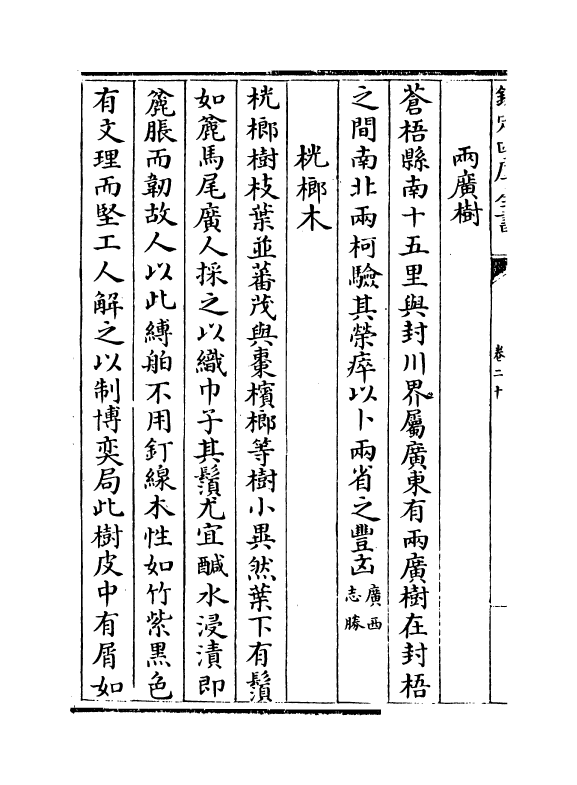 欽定四庫全書
卷二十
兩廣樹
蒼梧縣南十五里與封川界屬廣東有兩廣樹在封梧
之間南北兩柯驗其榮瘁以卜兩省之豐㐫廣西志勝
桄榔木
桄榔樹枝葉並蕃茂與棗檳榔等樹小異然葉下有鬚
如麄馬尾廣人採之以織巾子其鬚尤宜鹹水浸漬即
麄脹而韌故人以此縛舶不用釘線木性如竹紫黑色
有文理而堅工人解之以制博奕局此樹皮中有屑如